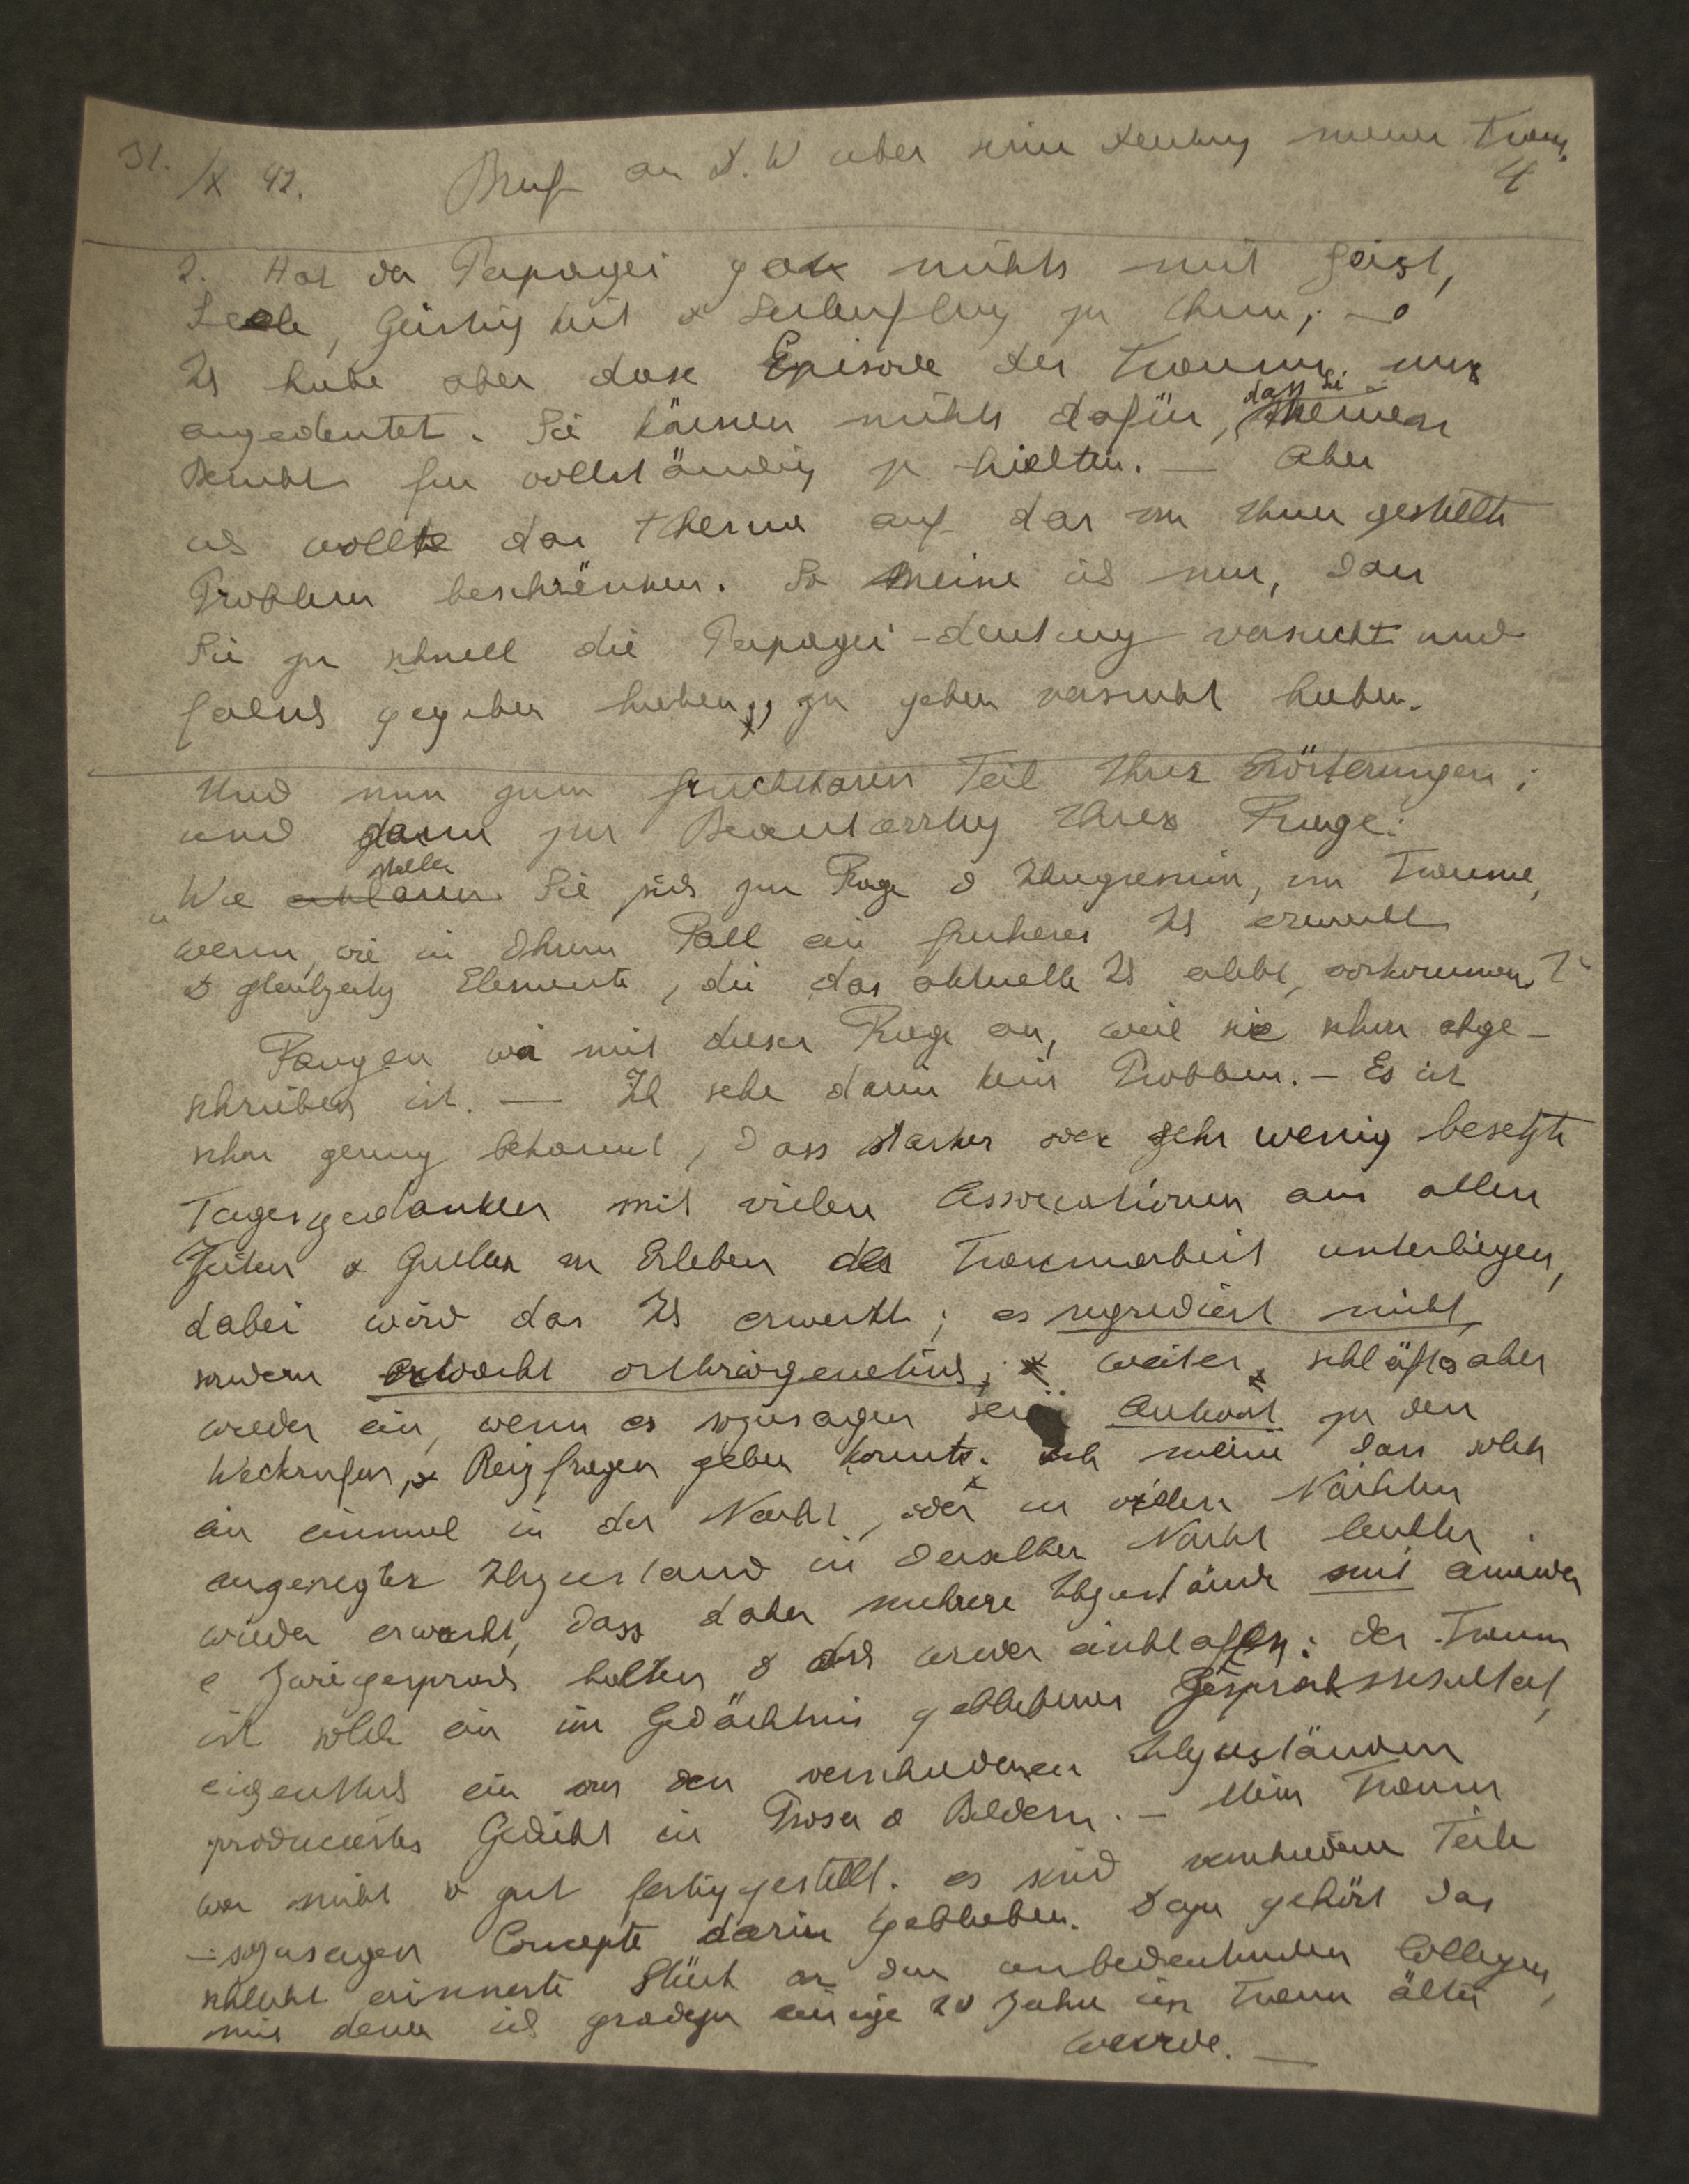 31. /X 42. Brief an D. W über seine Deutung meines Traums
4
2. Hat der Papagei gar nichts mit Geist,
Seele, Geistigkeit & Seelenflug zu thun; —
Ich habe aber diese Episode des Traumes nur
angedeutet. Sie können nichts dafür, dass Sie meinen
Bericht für vollständig hielten. — Aber
ich wollte das Thema auf das von Ihnen gestellte
Problem beschränken. So meine ich nur, dass
Sie zu schnell die Papagei-deutung versucht und
falsch gegeben haben, zu geben versucht haben.
Und nun zum fruchtbaren Teil Ihrer Erörterungen;
und dann zur Beantwortung Ihrer Frage:
"Wie stellen Sie sich zur Frage d Ichregression, im Traume,
wenn, wie in Ihrem Fall ein früheres Ich erwacht
& gleichzeitig Elemente, die das aktuelle Ich erlebt, vorkommen?"
Fangen wir mit dieser Frage an, weil sie schon abge-
schrieben ist. — Ich sehe darin kein Problem. — Es ist
schon genug bekannt, dass starker oder sehr wenig besetzte
Tagesgedanken mit vielen Associationen aus allen
Zeiten & Quellen im Erleben der Traumarbeit unterliegen,
dabei wird das Ich erweckt; es regrediert nicht,
sondern erwacht orthriogenetisch; weiter, schläft aber
wieder ein, wenn es sozusagen seine Antwort zu den
Weckrufen, & Reizfragen geben konnte. Ich meine dass solch
ein einmal in der Nacht, oder in vielen Nächten
angeregter Ichzustand in derselben Nacht leichter
wieder erwacht, dass daher mehrere Ichzustände mit einander
e Zwiegespräch halten & dass wieder einschlafen; der Traum
ist solch ein im Gedächtnis gebliebenes Gesprächsresultat,
eigentlich ein von den verschiedenen Ichzuständen
produciertes Gedicht in Prosa & Bildern. — Mein Traum
war nicht so gut fertiggestellt. es sind verschiedene Teile
— sozusagen Concepte darin geblieben. Dazu gehört das
schlecht erinnerte Stück an den unbedeutenden Collegen,
mit denen ich gradezu einige 20 Jahre im Traum älter
wurde. —